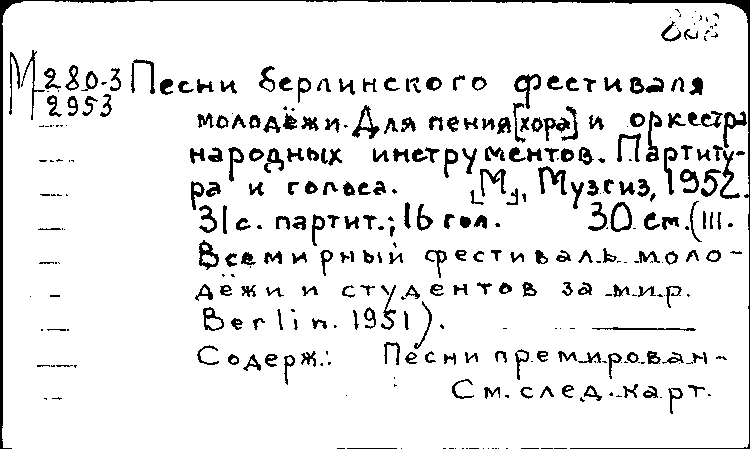 888
М 280-3 Песни берлинского фестиваля
2953
молодёжи. Для пения [хора] и оркестра
народных инструментов. Партиту-
ра и голоса. [М.], Музгиз, 1952.
31 с. партит.; 16 гол. 30 см. (III.
Всемирный фестиваль моло-
дёжи и студентов за мир.
Berlin. 1951).
Содерж.: Песни премирован-
См. след. карт.